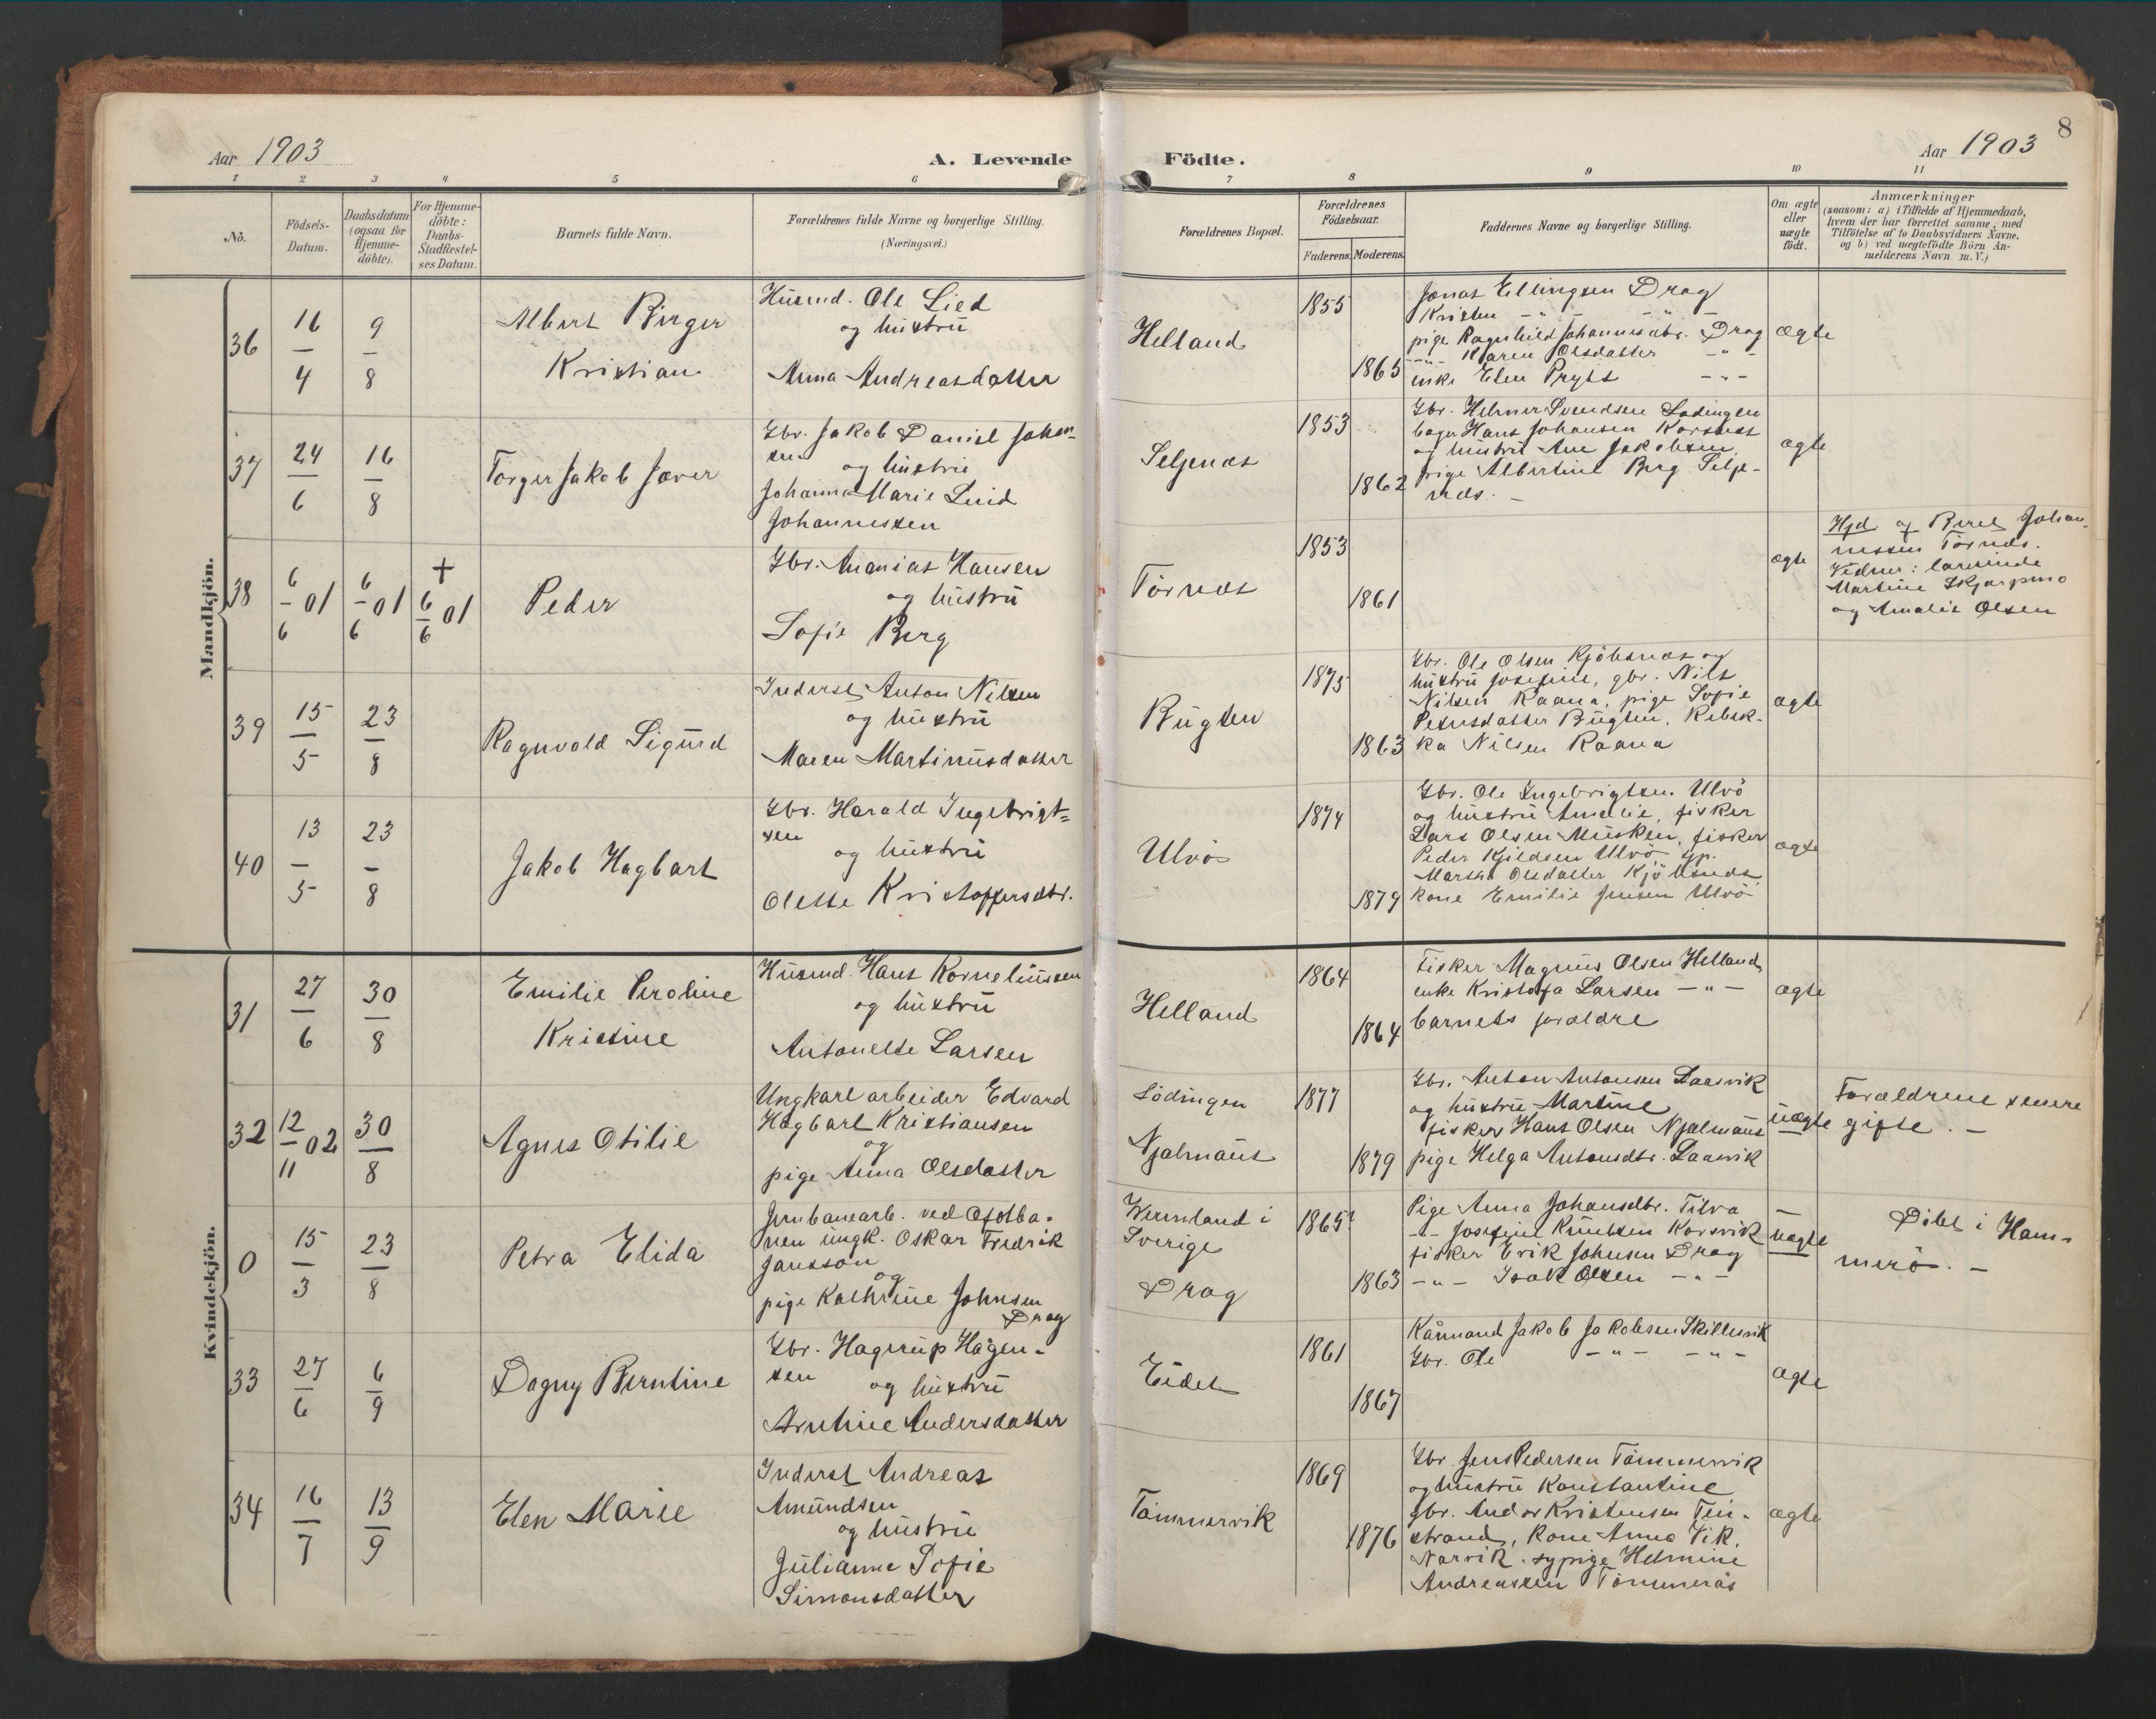 8
Aar 1903
A. Levende
Födte.
Aar 1903
1 2 3 4 5 6 7 8 9 10 11
No.
Födsels-
Datum.
Daabsdatum
(ogsaa for
Hjemme-
döbte).
For Hjemme-
döbte:
Daabs-
Stadfæstel-
ses Datum.
Barnets fulde Navn.
Forældrenes fulde Navne og borgerlige Stilling.
(Næringsvei.)
Forældrenes Bopæl.
Forældrenes
Födselsaar.
Faderens. Moderens.
Faddernes Navne og borgerlige Stilling.
Om ægte
eller
uægte
födt.
Anmærkninger
(saasom: a) i Tilfælde af Hjemmedaab,
hvem der har forrettet samme, med
Tilföielse af to Daabsvidners Navne,
og b) ved uægtefödte Börn An-
melderens Navn m. V.)
Mandkjön.
36
16/4
9/8
Albert Birger
Kristian
Husmd. Ole Lied
og hustru
Anna Andreasdatter
Helland
1855
1865
Jonas Ellingsen Drag
Kristen -"- -"-
pige Ragnhild Johannesdtr. Drag
-"- Karen Olsdatter -"-
enke Elen Prytz -"-
ægte
37
24/6
16/8
Torger Jakob Jover
Gbr. Jakob Daniel Johan-
sen og hustru
Johanna Marie Lund
Johannessen
Seljenæs
1853
1862
Gbr. Helmer Svendsen Lødingen
bager Hans Johansen Korsnæs
og hustru Ane Jakobsen,
pige Albertine Berg Selje-
næs. -
ægte
38
6/6 01
6/6 01
+
6/6 01
Peder
Gbr. Ananias Hansen
og hustru
Sofie Berg
Törnæs
1853
1861
ægte
Hjd. af Berel Johan-
nessen Törnæs.
Vidner: lærerinde
Martine Skjarpmo
og Amalie Olsen
39
15/5
23/8
Ragnvald Sigurd
Inderst Anton Nilsen
og hustru
Maren Martinusdatter
Bugten
1875
1863
Gbr. Ole Olsen Kjöbsnæs og
hustru Josefine, gbr. Nils
Nilsen Raana, pige Sofie
Petersdatter Bugten, Rebek-
ka Nilsen Raana
ægte
40
13/5
23/8
Jakob Hagbart
Gbr. Harald Ingebrigt=
sen
og hustru
Olette Kristoffersdtr.
Ulvö
1874
1879
Gbr. Ole Ingebrigtsen Ulvö
og hustru Amalie, fisker
Lars Olsen Musken, fisker
Peder Kjeldsen Ulvö, gp.
Martha Olsdatter Kjöbsnæs
kone Emilie Jensen Ulvö
ægte
Kvindekjön.
31
27/6
30/8
Emilie Peroline
Kristine
Husmd. Hans Korneliussen
og hustru
Antonette Larsen
Helland
1864
1864
Fisker Magnus Olsen Helland,
enke Kristofa Larsen -"-
barnets forældre
ægte
32
12/11 02
30/8
Agnes Otilie
Ungkarl arbeider Edvard
Hagbart Kristiansen
og
pige Anna Olsdatter
Lödingen
Njalmaus
1877
1879
Gbr. Anton Antonsen Laasvik
og hustru Martine
fisker Hans Olsen Njalmaus
pige Helga Antonsdtr. Laasvik
uægte
Forældrene senere
gifte. -
0
15/3
23/8
Petra Elida
Jernbanearb. ved Ofotba-
nen ungk. Oskar Fredrik
Jansson
og
pige Kathrine Johnsen
Drag
Wermland i
Sverige
Drag
1865?
1863
Pige Anna Johansdtr. Tilva
-"- Josefine Knutsen Korsvik
fisker Erik Johnsen Drag
-"- Isak Olsen -"-
uægte
Döbt i Ham-
merö. -
33
27/6
6/9
Dagny Berntine
Gbr. Hagerup Hagen-
sen
og hustru
Arntine Andersdatter
Eidet
1861
1867
Kårmand Jakob Jakobsen Skillevik
Gbr. Ole -"- -"-
ægte
34
16/7
13/9
Elen Marie
Inderst Andreas
Amundsen
og hustru
Julianna Sofie
Simonsdatter
Tömmervik
1869
1876
Gbr. Jens Pedersen Tömmervik
og hustru Konstantine
gbr. Andor Kristensen Fin-
strand, kone Anna Vik,
Narvik, sypige Helmine
Andreassen Tömmerås
ægte